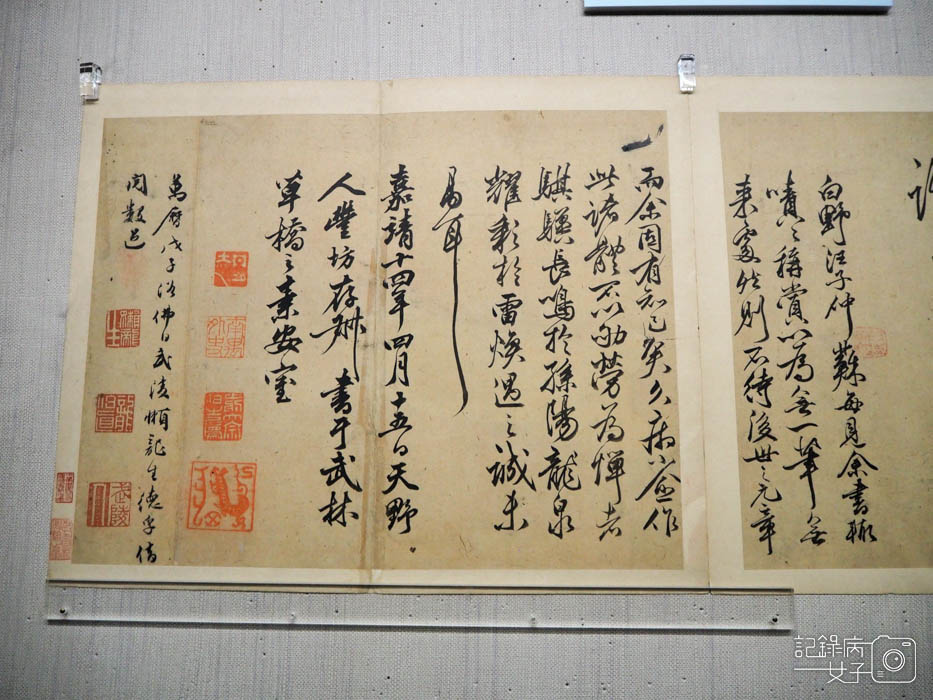 白野汪子仲蘇每見余書輒
嘖嘖稱賞以為無一筆無
來處然則不待後世之元章
而余固有知己矣久病不愈作
此諸體不以劬勞為憚者
騏驥長鳴於孫陽龍泉
耀彩於雷煥遇之誠未
易耳
嘉靖十四年四月十五日天野
人豐坊存叔書于武林
草橋之素安室
萬曆戊子浴佛日武陵懶龍生德孚借
閱數過
武陵
記錄病
女子